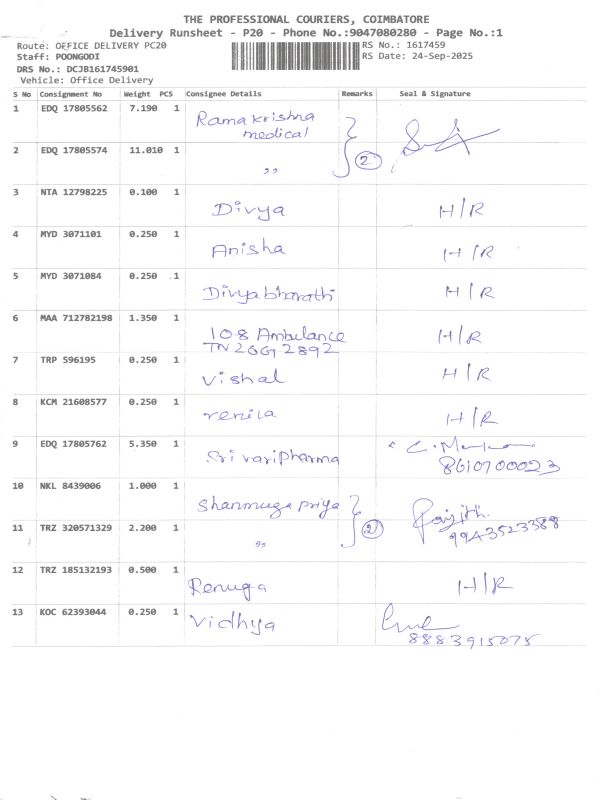 THE PROFESSIONAL COURIERS, COIMBATORE
Delivery Runsheet - P20 - Phone No.:9047080280 - Page No.:1
Route: OFFICE DELIVERY PC20 RS No.: 1617459
Staff: POONGODI RS Date: 24-Sep-2025
DRS No.: DCJB161745901
Vehicle: Office Delivery
S No Consignment No Weight PCS Consignee Details Remarks Seal & Signature
1 EDQ 17805562 7.190 1 Ramakrishna
medical
2 EDQ 17805574 11.010 1 ,, 2
3 NTA 12798225 0.100 1 Divya H/R
4 MYD 3071101 0.250 1 Anisha H/R
5 MYD 3071084 0.250 1 Divyabharathi H/R
6 MAA 712782198 1.350 1 108 Ambulance H/R
TN 20G 2892
7 TRP 596195 0.250 1 Vishal H/R
8 KCM 21608577 0.250 1 renila H/R
9 EDQ 17805762 5.350 1 Srivaripharma
8610700023
10 NKL 8439006 1.000 1 Shanmuga priya
11 TRZ 320571329 2.200 1 ,, 2 9943523388
12 TRZ 185132193 0.500 1 Renuga H/R
13 KOC 62393044 0.250 1 Vidhya
8883915075